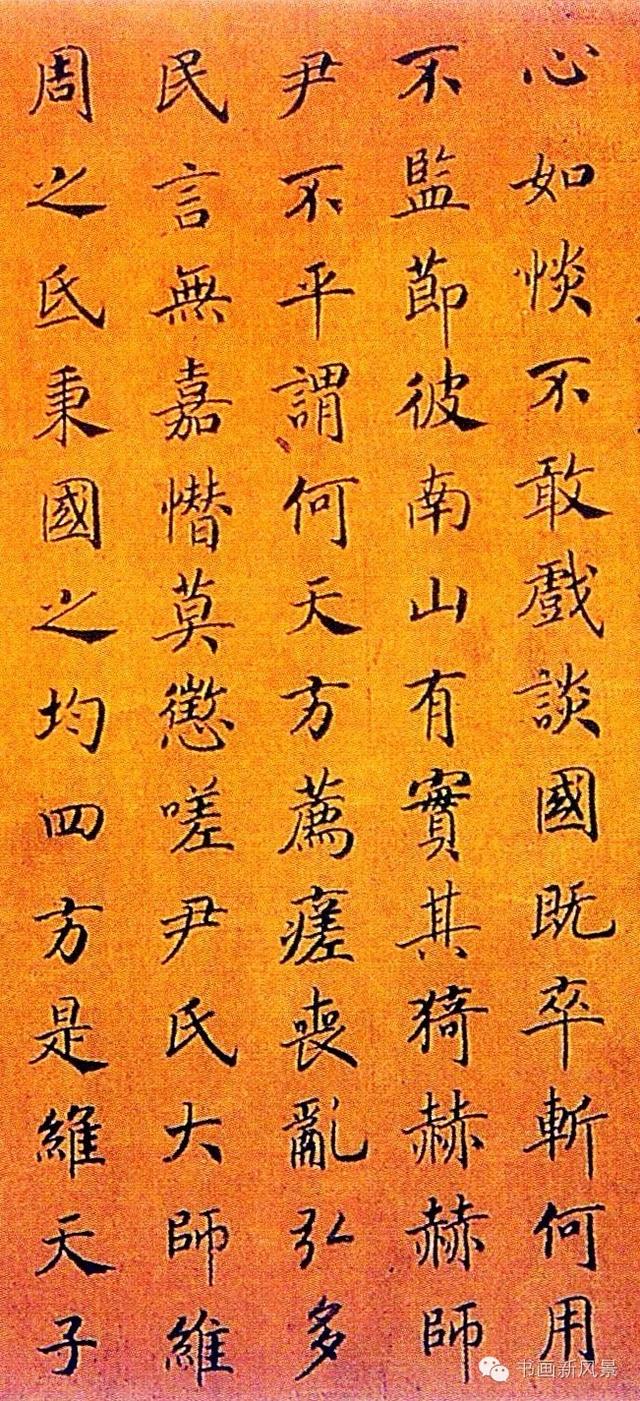 心如惔不敢戲談國既卒斬何用
不監節彼南山有實其猗赫赫師
尹不平謂何天方薦瘥喪亂弘多
民言無嘉憯莫懲嗟尹氏大師維
周之氐秉國之均四方是維天子
书画新风景